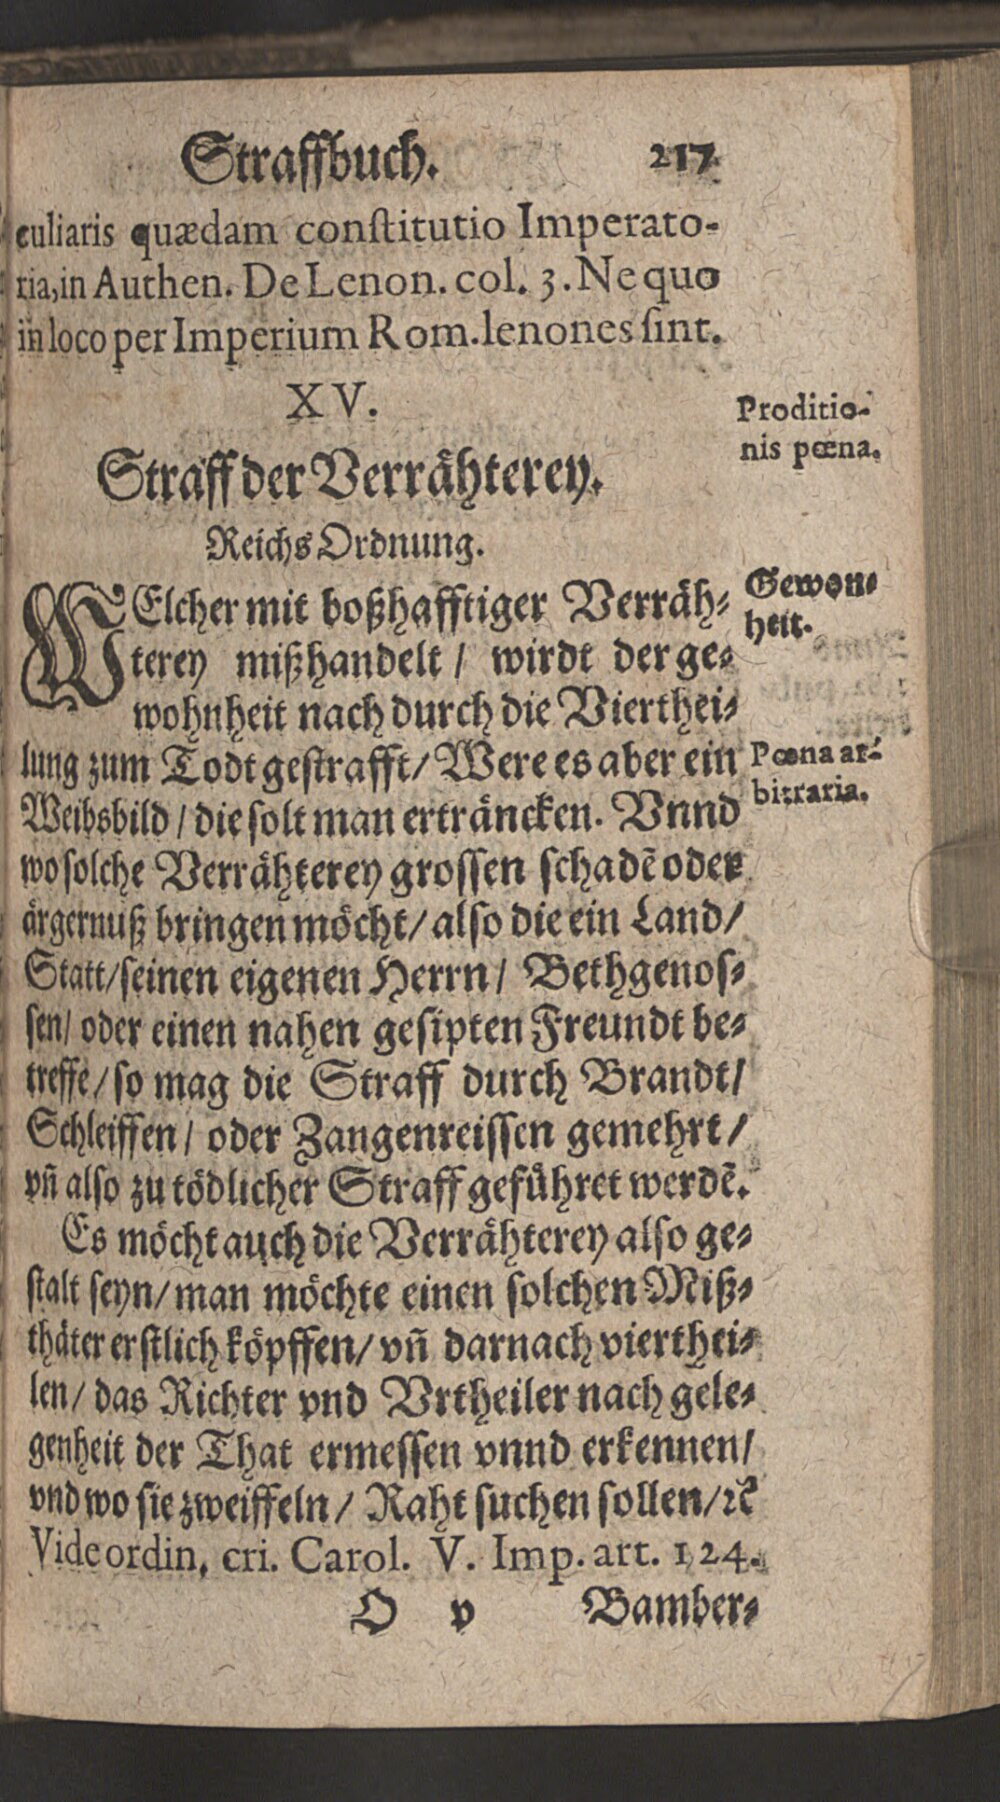 Straffbuch. 217
culiaris quædam constitutio Imperato-
ria, in Authen. De Lenon. col. 3. Ne quo
in loco per Imperium Rom. lenones sint.
XV.
Proditio-
nis pœna.
Straff der Verrähterey.
Reichs Ordnung.
WElcher mit boßhafftiger Verräh-
terey mißhandelt / wirdt der ge-
wohnheit nach durch die Vierthei-
Gewon-
heit.
lung zum Todt gestrafft / Were es aber ein
Weibsbild / die solt man erträncken. Vnnd
Pœna ar-
bitraria.
wo solche Verrähterey grossen schadẽ oder
ärgernuß bringen möcht / also die ein Land /
Statt / seinen eigenen Herrn / Bethgenos-
sen / oder einen nahen gesipten Freundt be-
treffẽ / so mag die Straff durch Brandt /
Schleiffen / oder Zangenreissen gemehrt /
vñ also zu tödlicher Straff geführet werdẽ.
Es möcht auch die Verrähterey also ge-
stalt seyn / man möchte einen solchen Miß-
thäter erstlich köpffen / vñ darnach vierthei-
len / das Richter vnd Vrtheiler nach gele-
genheit der That ermessen vnnd erkennen /
vnd wo sie zweiffeln / Raht suchen sollen / ꝛc̃
Vide ordin. cri. Carol. V. Imp. art. 124.
O v Bamber-